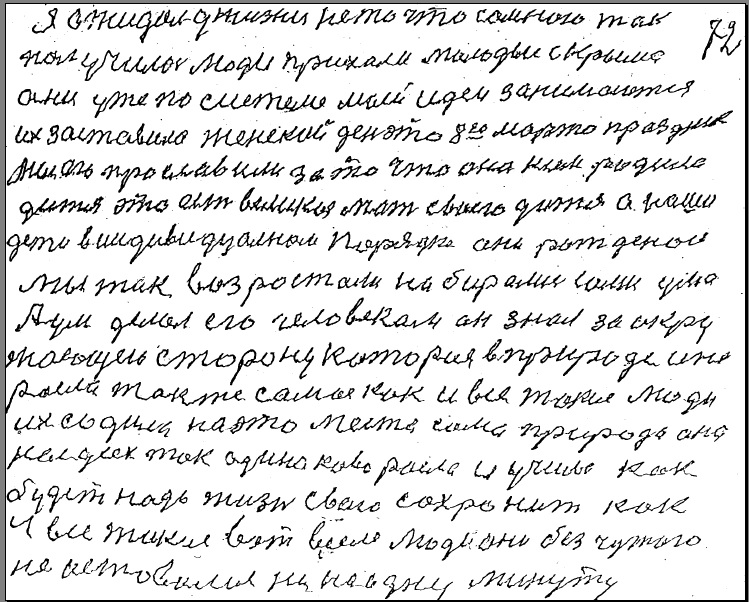 72
я ожидал в жизни не то что самною так
получилос люди приехали молодые с крыма
они уже по системе моей идеи занимаются
их заставила женский ден это 8го марта праздник
прославили за то что она как родила
дитя это ест великая мат своего дитя а наши
дети в индивидуалном порядке они рожденои
мы так возростали набирали сами ума
А ум делал его человекам он знал за окру
жающею сторону которая в природе и не
росли также самое как и все такие люди
их содил на это места сама природа она
нам всех так одинаково росла и учила как
будет надь жизн свою сохронит как
и все такие вот всем люди они без чужого
не оставалис ни на одну минуту